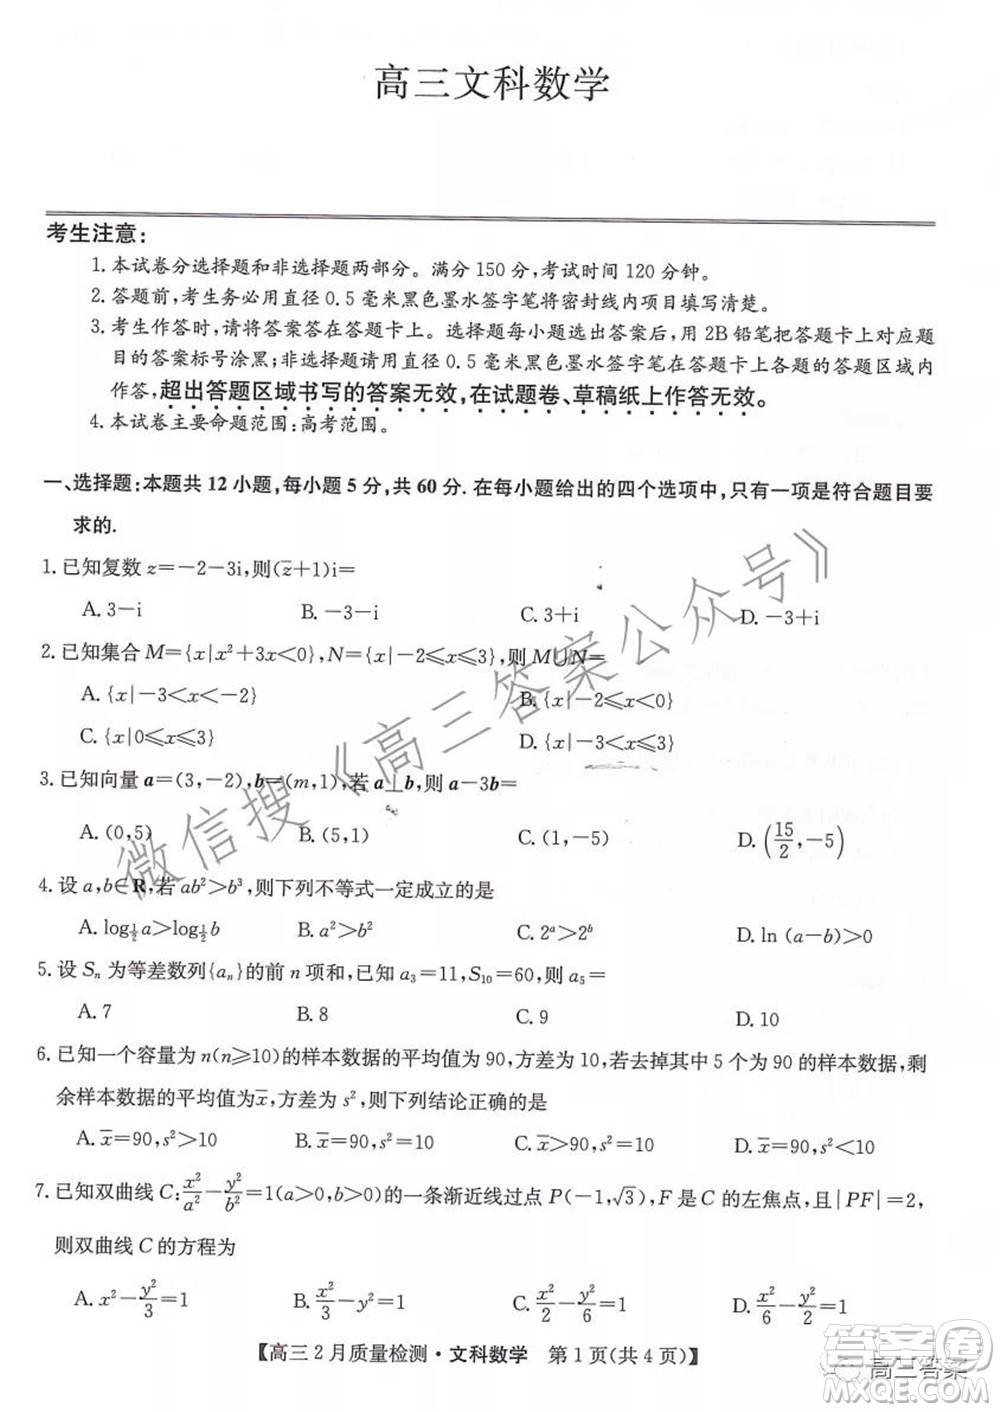 高三文科数学
考生注意:
1. 本试卷分选择题和非选择题两部分。满分 150 分,考试时间 120 分钟。
2. 答题前,考生务必用直径 0.5 毫米黑色墨水签字笔将密封线内项目填写清楚。
3. 考生作答时,请将答案答在答题卡上。选择题每小题选出答案后,用 2B 铅笔把答题卡上对应题
目的答案标号涂黑;非选择题请用直径 0.5 毫米黑色墨水签字笔在答题卡上各题的答题区域内
作答,超出答题区域书写的答案无效,在试题卷、草稿纸上作答无效。
4. 本试卷主要命题范围:高考范围。
一、选择题:本题共 12 小题,每小题 5 分,共 60 分. 在每小题给出的四个选项中,只有一项是符合题目要
求的.
1. 已知复数 z=-2-3i,则(z̅+1)i=
A. 3-i B. -3-i C. 3+i D. -3+i
2. 已知集合 M={x|x²+3x<0},N={x|-2≤x≤3},则 M∪N=
A. {x|-3<x<-2} B. {x|-2≤x<0}
C. {x|0≤x≤3} D. {x|-3<x≤3}
3. 已知向量 a=(3,-2),b=(m,1),若 a⊥b,则 a-3b=
A. (0,5) B. (5,1) C. (1,-5) D. (15/2,-5)
4. 设 a,b∈R,若 ab²>b³,则下列不等式一定成立的是
A. log½ a>log½ b B. a²>b² C. 2ᵃ>2ᵇ D. ln (a-b)>0
5. 设 Sₙ 为等差数列{aₙ}的前 n 项和,已知 a₃=11,S₁₀=60,则 a₅=
A. 7 B. 8 C. 9 D. 10
6. 已知一个容量为 n(n≥10)的样本数据的平均值为 90,方差为 10,若去掉其中 5 个为 90 的样本数据,剩
余样本数据的平均值为x̅,方差为 s²,则下列结论正确的是
A. x̅=90,s²>10 B. x̅=90,s²=10 C. x̅>90,s²=10 D. x̅=90,s²<10
7. 已知双曲线 C:x²/a²-y²/b²=1(a>0,b>0)的一条渐近线过点 P(-1,√3),F 是 C 的左焦点,且|PF|=2,
则双曲线 C 的方程为
A. x²-y²/3=1 B. x²/3-y²=1 C. x²/2-y²/6=1 D. x²/6-y²/2=1
【高三 2 月质量检测·文科数学 第 1 页(共 4 页)】
微信搜《高三答案公众号》
高三答案
答案圈
MXQE.COM